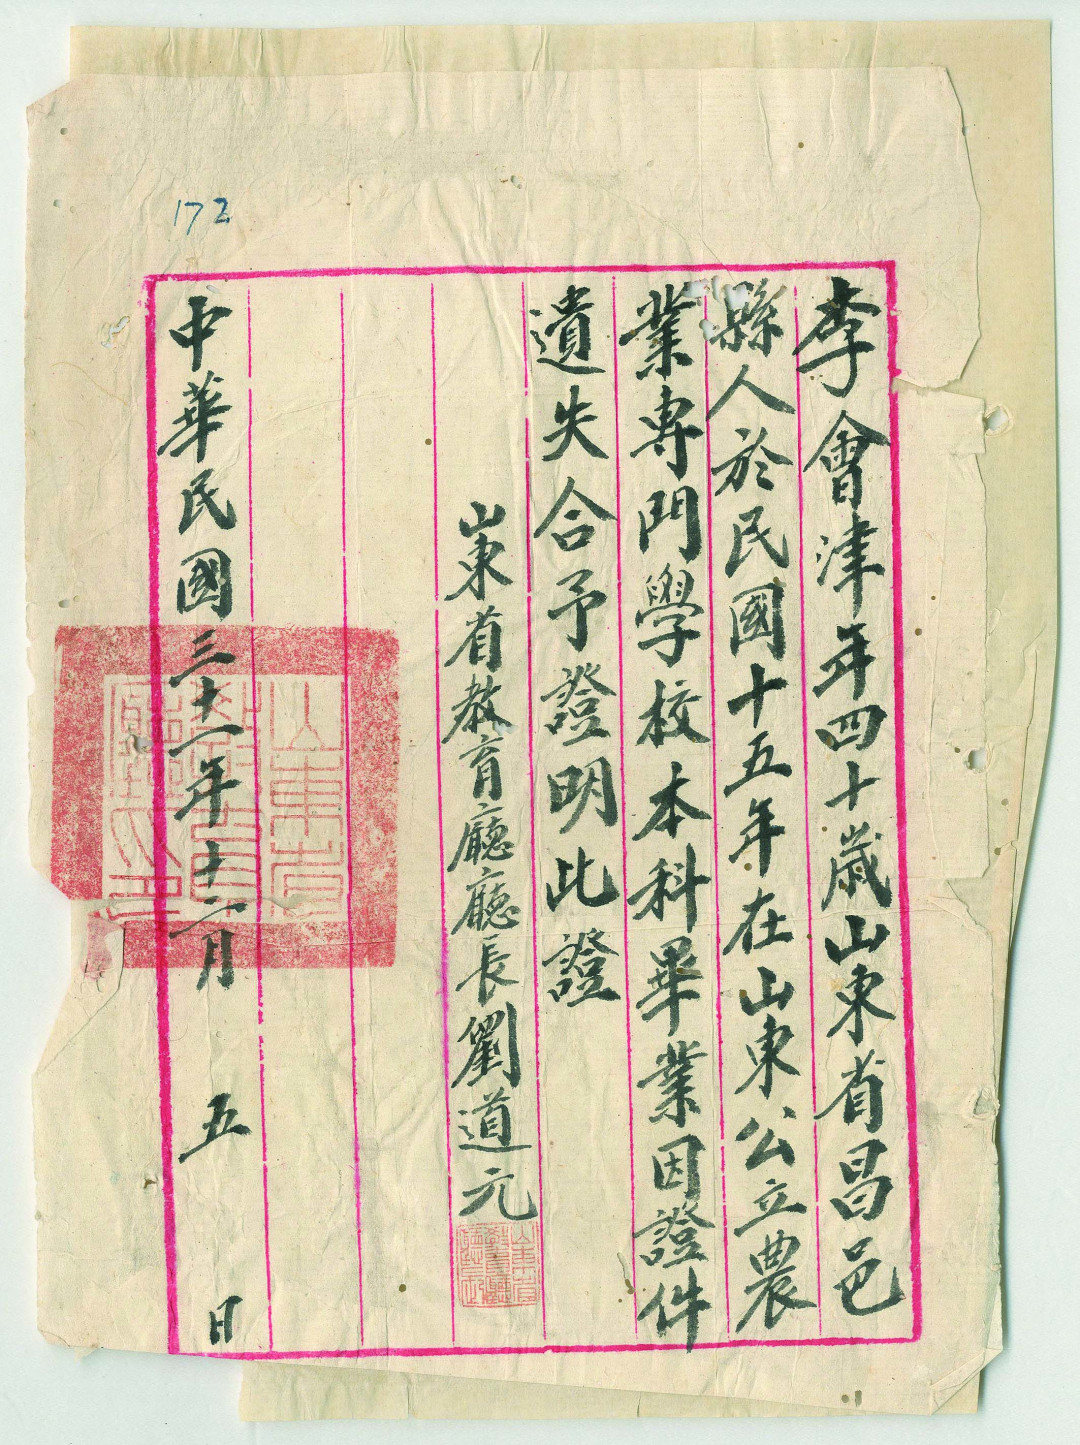 172
李會津年四十歲山東省昌邑
縣人於民國十五年在山東公立農
業專門學校本科畢業因證件
遺失合予證明此證
山東省教育廳廳長劉道元
中華民國三十一年十二月 五 日
山東省
教育廳
廳長印
山東省
教育廳